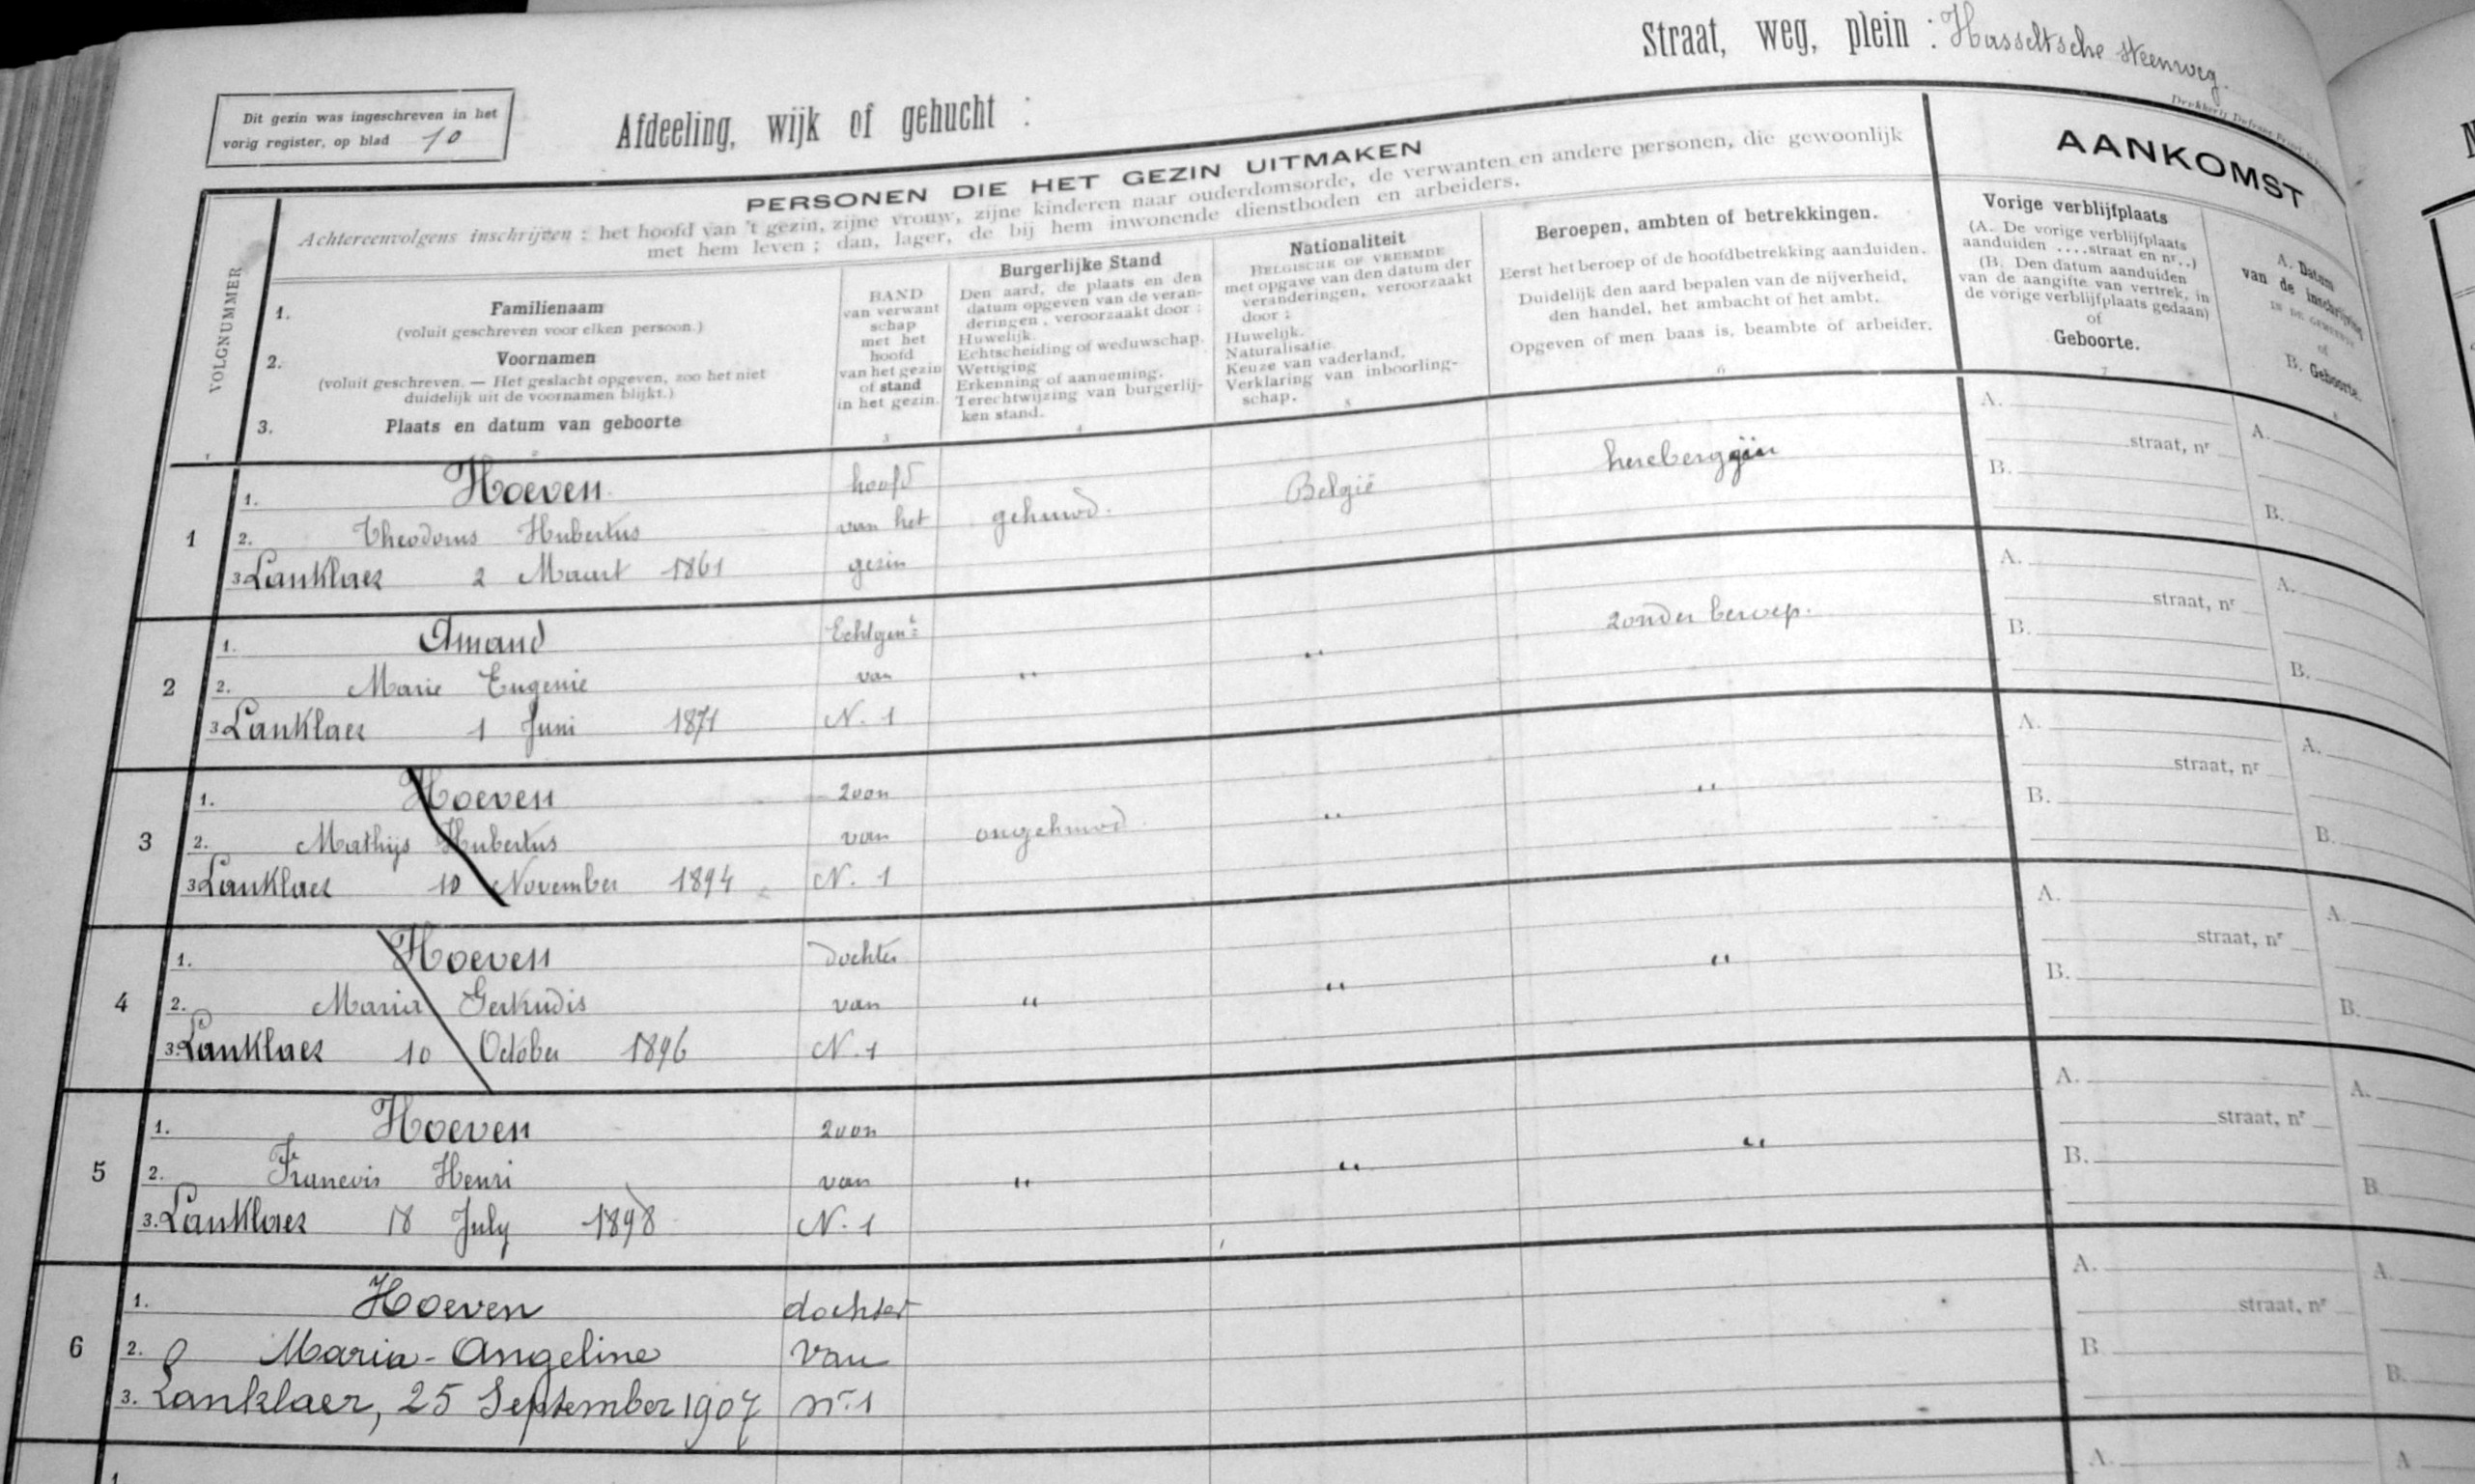 Straat, weg, plein : Hasseltsche steenweg.
Dit gezin was ingeschreven in het
vorig register, op blad 10
Afdeeling, wijk of gehucht :
PERSONEN DIE HET GEZIN UITMAKEN
Achtereenvolgens inschrijven : het hoofd van 't gezin, zijne vrouw, zijne kinderen naar ouderdomsorde, de verwanten en andere personen, die gewoonlijk
met hem leven ; dan, lager, de bij hem inwonende dienstboden en arbeiders.
AANKOMST
VOLGNUMMER
1. Familienaam
(voluit geschreven voor elken persoon.)
2. Voornamen
(voluit geschreven. — Het geslacht opgeven, zoo het niet
duidelijk uit de voornamen blijkt.)
3. Plaats en datum van geboorte
BAND
van verwant
schap
met het
hoofd
van het gezin
of stand
in het gezin.
3
Burgerlijke Stand
Den aard, de plaats en den
datum opgeven van de veran-
deringen, veroorzaakt door :
Huwelijk.
Echtscheiding of weduwschap.
Wettiging
Erkenning of aanneming.
Terechtwijzing van burgerlij-
ken stand.
4
Nationaliteit
BELGISCHE OF VREEMDE
met opgave van den datum der
veranderingen, veroorzaakt
door :
Huwelijk.
Naturalisatie.
Keuze van vaderland.
Verklaring van inboorling-
schap.
5
Beroepen, ambten of betrekkingen.
Eerst het beroep of de hoofdbetrekking aanduiden.
Duidelijk den aard bepalen van de nijverheid,
den handel, het ambacht of het ambt.
Opgeven of men baas is, beambte of arbeider.
6
Vorige verblijfplaats
(A. De vorige verblijfplaats
aanduiden ....straat en nr..)
(B. Den datum aanduiden
van de aangifte van vertrek, in
de vorige verblijfplaats gedaan)
of
Geboorte.
7
A. Datum
van de inschrijving
IN DE GEMEENTE
of
B. Geboorte.
1
1. Hoeven
2. Theodorus Hubertus
3. Lanklaer 2 Maart 1861
hoofd
van het
gezin
gehuwd.
België
A.
straat, nr
B.
A.
B.
2
1. Amand
2. Marie Eugenie
3. Lanklaer 1 Juni 1871
Echtgent
van
N. 1
"
"
zonder beroep.
A.
straat, nr
B.
A.
B.
3
1. Hoeven
2. Mathijs Hubertus
3. Lanklaer 10 November 1894
zoon
van
N. 1
ongehuwd
"
"
A.
straat, nr
B.
A.
B.
4
1. Hoeven
2. Maria Gertrudis
3. Lanklaer 10 October 1896
dochter
van
N. 1
"
"
"
A.
straat, nr
B.
A.
B.
5
1. Hoeven
2. Francois Henri
3. Lanklaer 18 July 1898
zoon
van
N. 1
"
"
"
A.
straat, nr
B.
A.
B
6
1. Hoeven
2. Maria-Angeline
3. Lanklaer, 25 September 1907
dochter
van
nr. 1
A.
straat, nr
B.
A.
B.
1.
A.
A